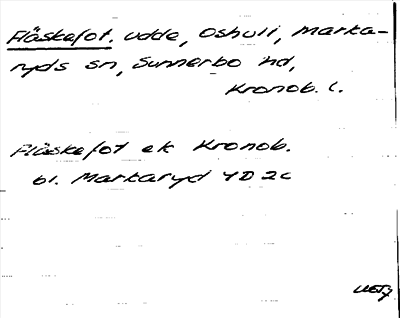 Fläskefot. udde, Oshult, Marka-
ryds sn, Sunnerbo hd,
Kronob. l.
Fläskefot ek Kronob.
bl. Markaryd 4D 2c